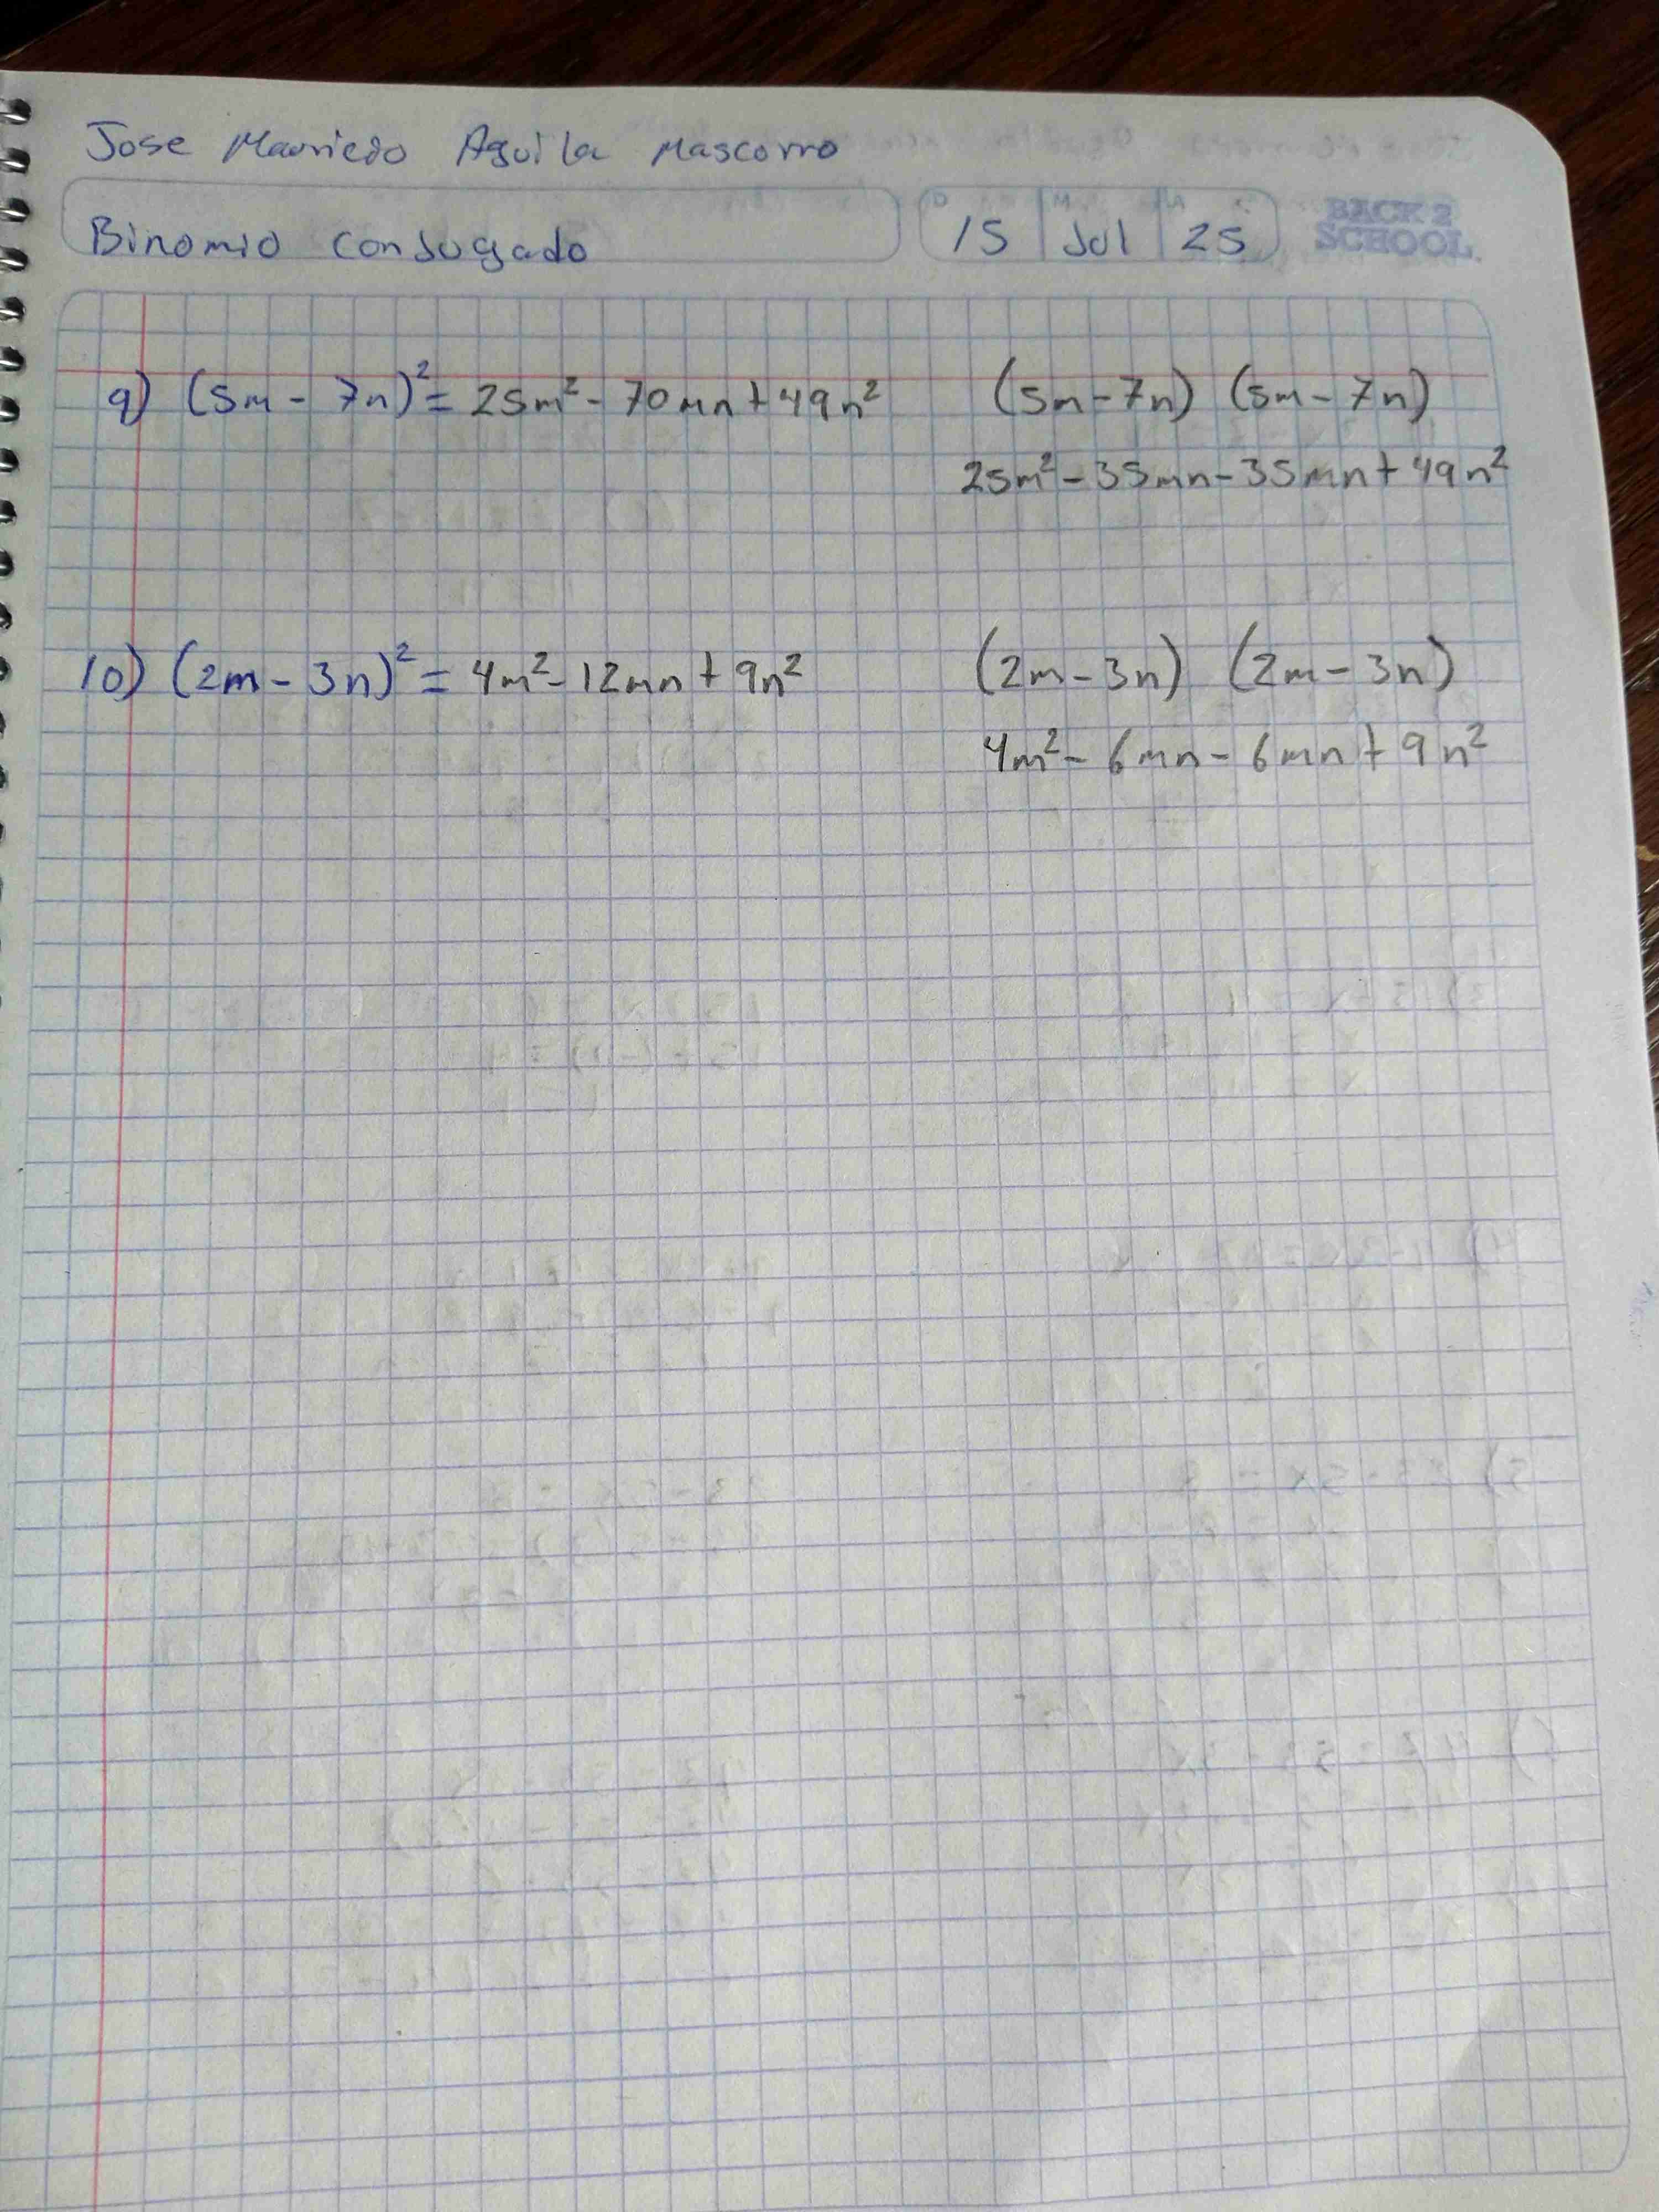 Jose Mauricio Aguila Mascorro
Binomio conjugado
D M A
15 Jul 25
BACK 2
SCHOOL
9) (5m - 7n)² = 25m² - 70mn + 49n²
(5m - 7n) (5m - 7n)
25m² - 35mn - 35mn + 49n²
10) (2m - 3n)² = 4m² - 12mn + 9n²
(2m - 3n) (2m - 3n)
4m² - 6mn - 6mn + 9n²